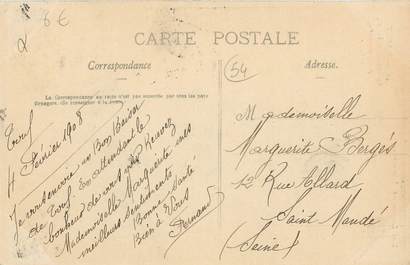 6€
CARTE POSTALE
Correspondance
Adresse.
54
La Correspondance au recto n'est pas acceptée par tous les pays
Étrangers. (Se renseigner à la poste)
4 Février 1908
Je vous envoie un Bon Baiser
de En attendant le
bonheur de vous
Mademoiselle Marguerite mes
meilleurs sentiments
Bonne santé
Bien à Vous
Fernand
Mademoiselle
Marguerite Bergès
12 Rue Allard
Saint Mandé
(Seine)